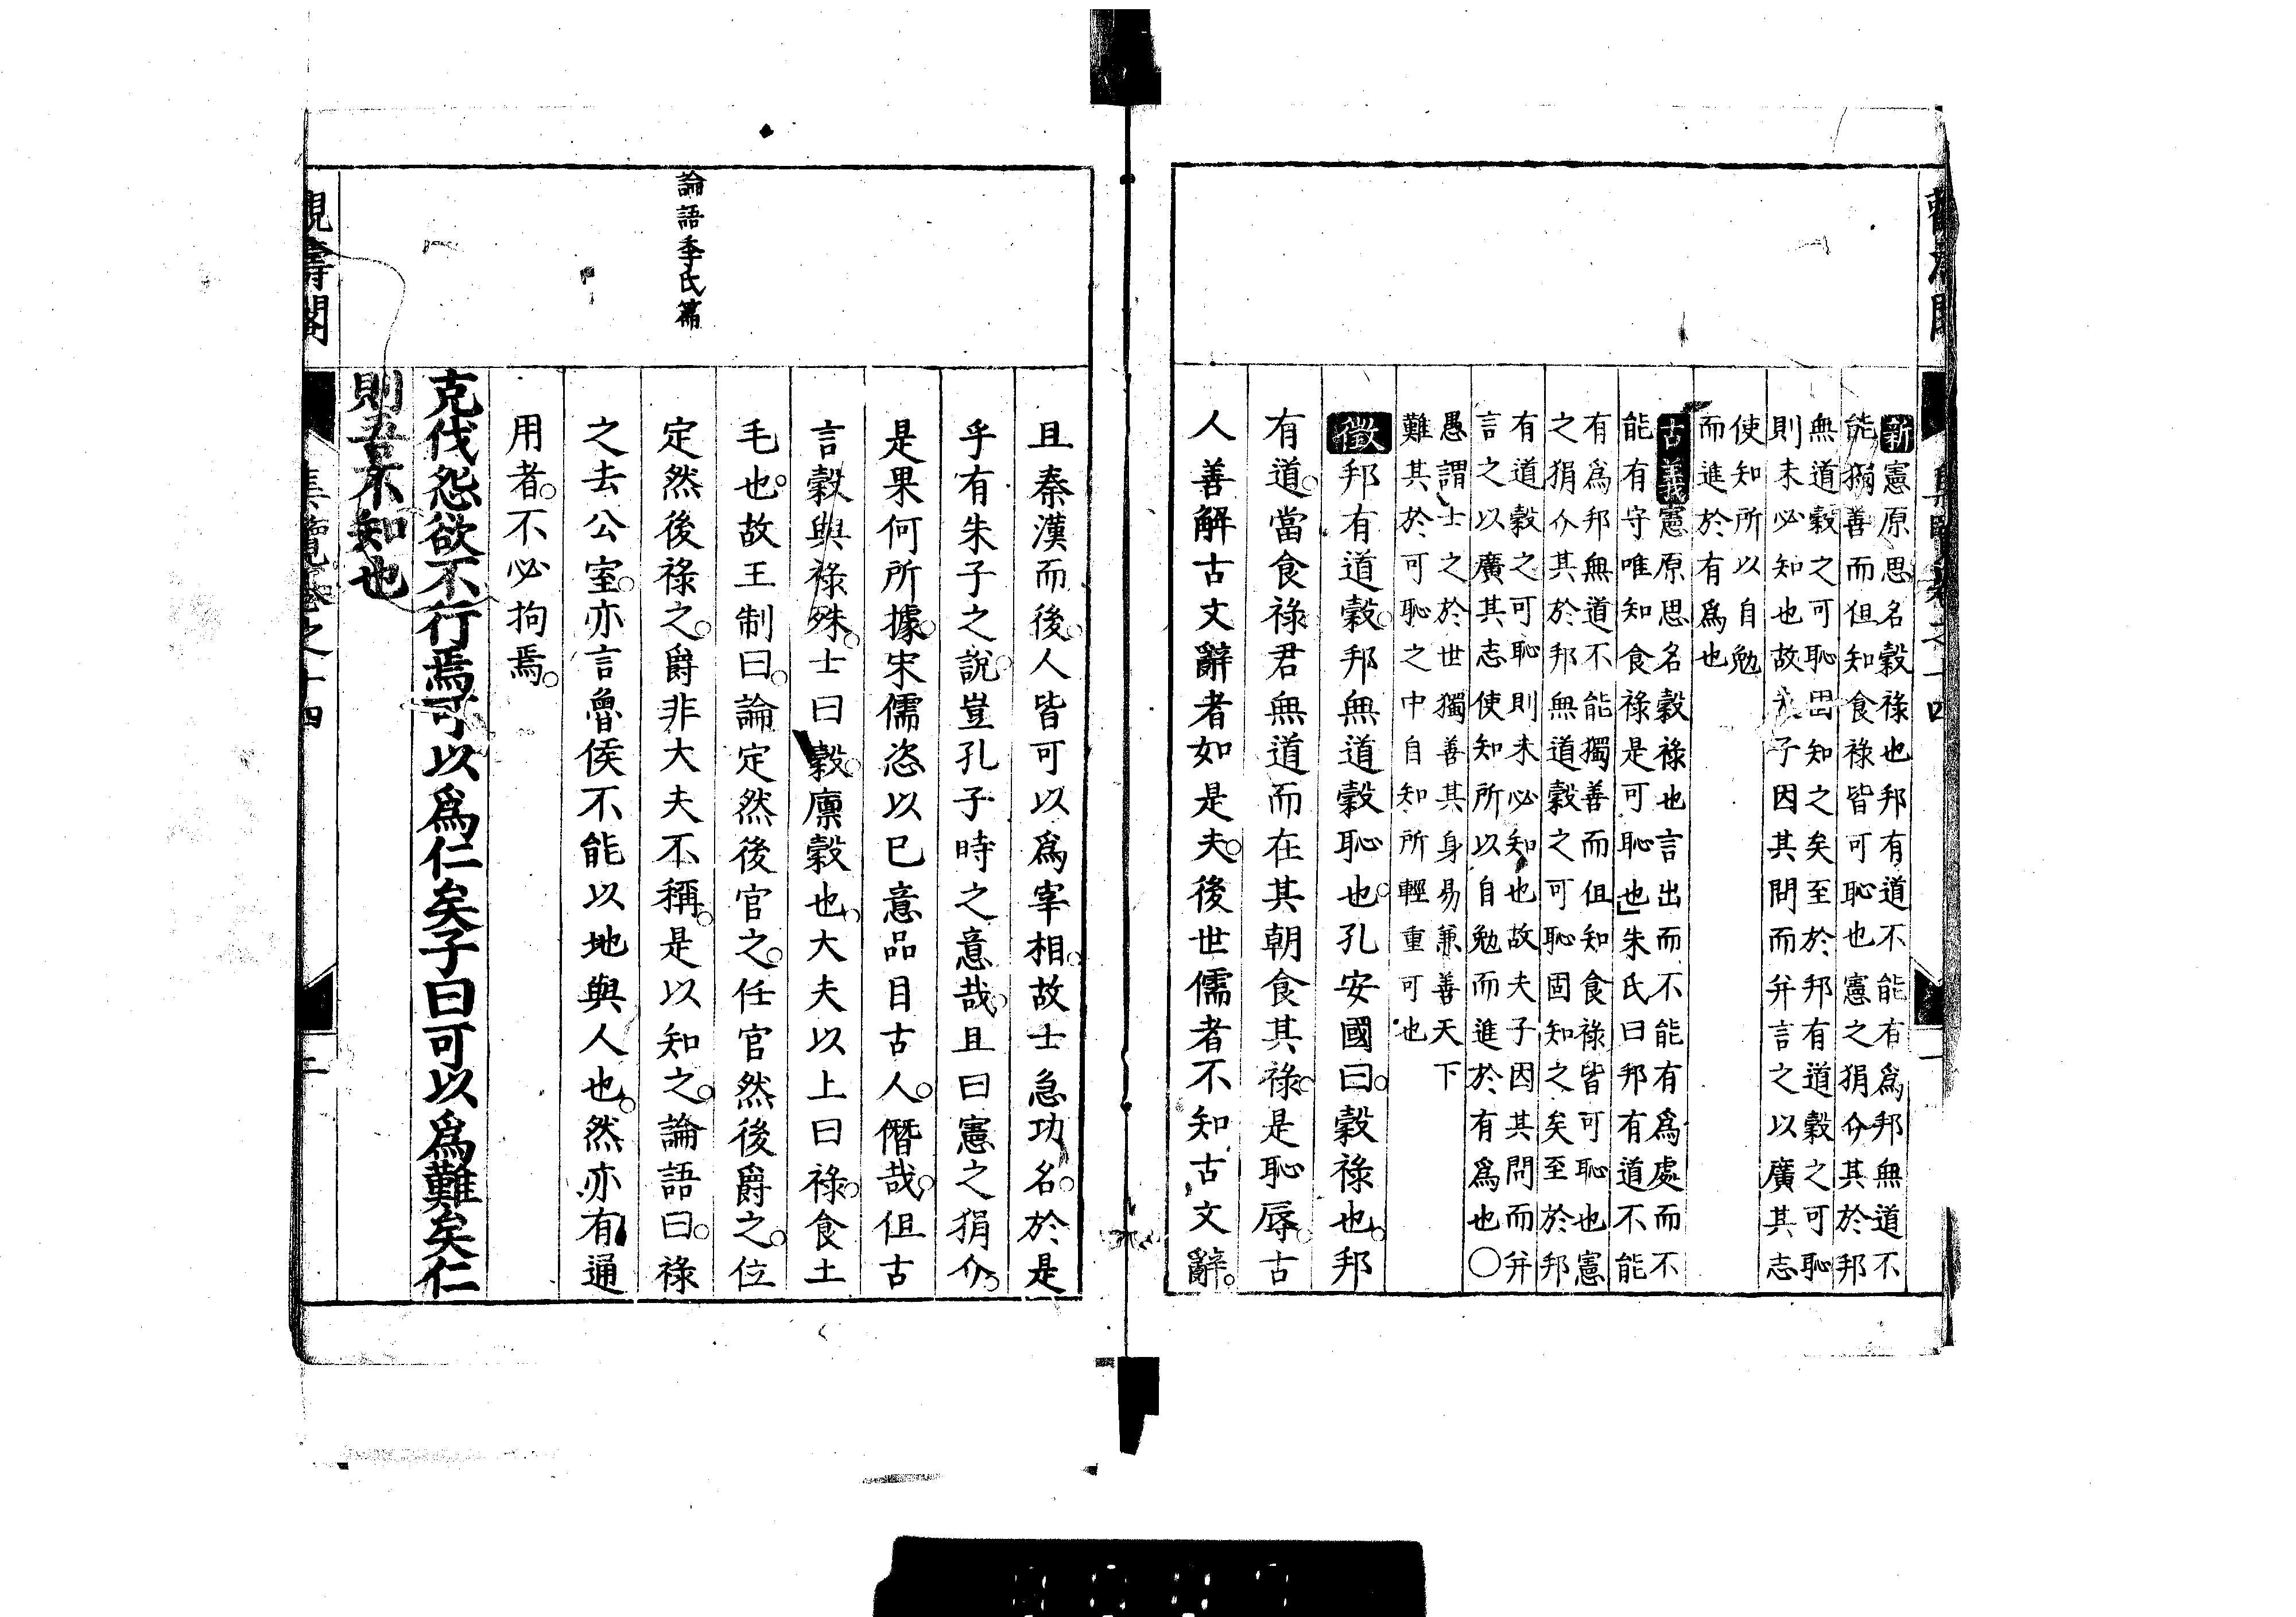 新憲原思名穀祿也邦有道不能有爲邦無道不
能獨善而但知食祿皆可恥也憲之狷介其於邦
無道穀之可恥固知之矣至於邦有道穀之可恥
則未必知也故夫子因其問而并言之以廣其志
使知所以自勉
而進於有爲也
古義憲原思名穀祿也言出而不能有爲處而不
能有守唯知食祿是可恥也朱氏曰邦有道不能
有爲邦無道不能獨善而但知食祿皆可恥也憲
之狷介其於邦無道穀之可恥固知之矣至於邦
有道穀之可恥則未必知也故夫子因其問而并
言之以廣其志使知所以自勉而進於有爲也〇
愚謂士之於世獨善其身易兼善天下
難其於可恥之中自知所輕重可也
徵邦有道穀邦無道穀恥也孔安國曰穀祿也邦
有道當食祿君無道而在其朝食其祿是恥辱古
人善解古文辭者如是夫後世儒者不知古文辭
且秦漢而後人皆可以爲宰相故士急功名於是
乎有朱子之說豈孔子時之意哉且曰憲之狷介
是果何所據宋儒恣以己意品目古人僭哉但古
言穀與祿殊士曰穀廩穀也大夫以上曰祿食土
毛也故王制曰論定然後官之任官然後爵之位
定然後祿之爵非大夫不稱是以知之論語曰祿
之去公室亦言魯侯不能以地與人也然亦有通
用者不必拘焉
論語季氏篇
克伐怨欲不行焉可以爲仁矣子曰可以爲難矣仁
則吾不知也
觀濤閣
集覽卷之十四
二